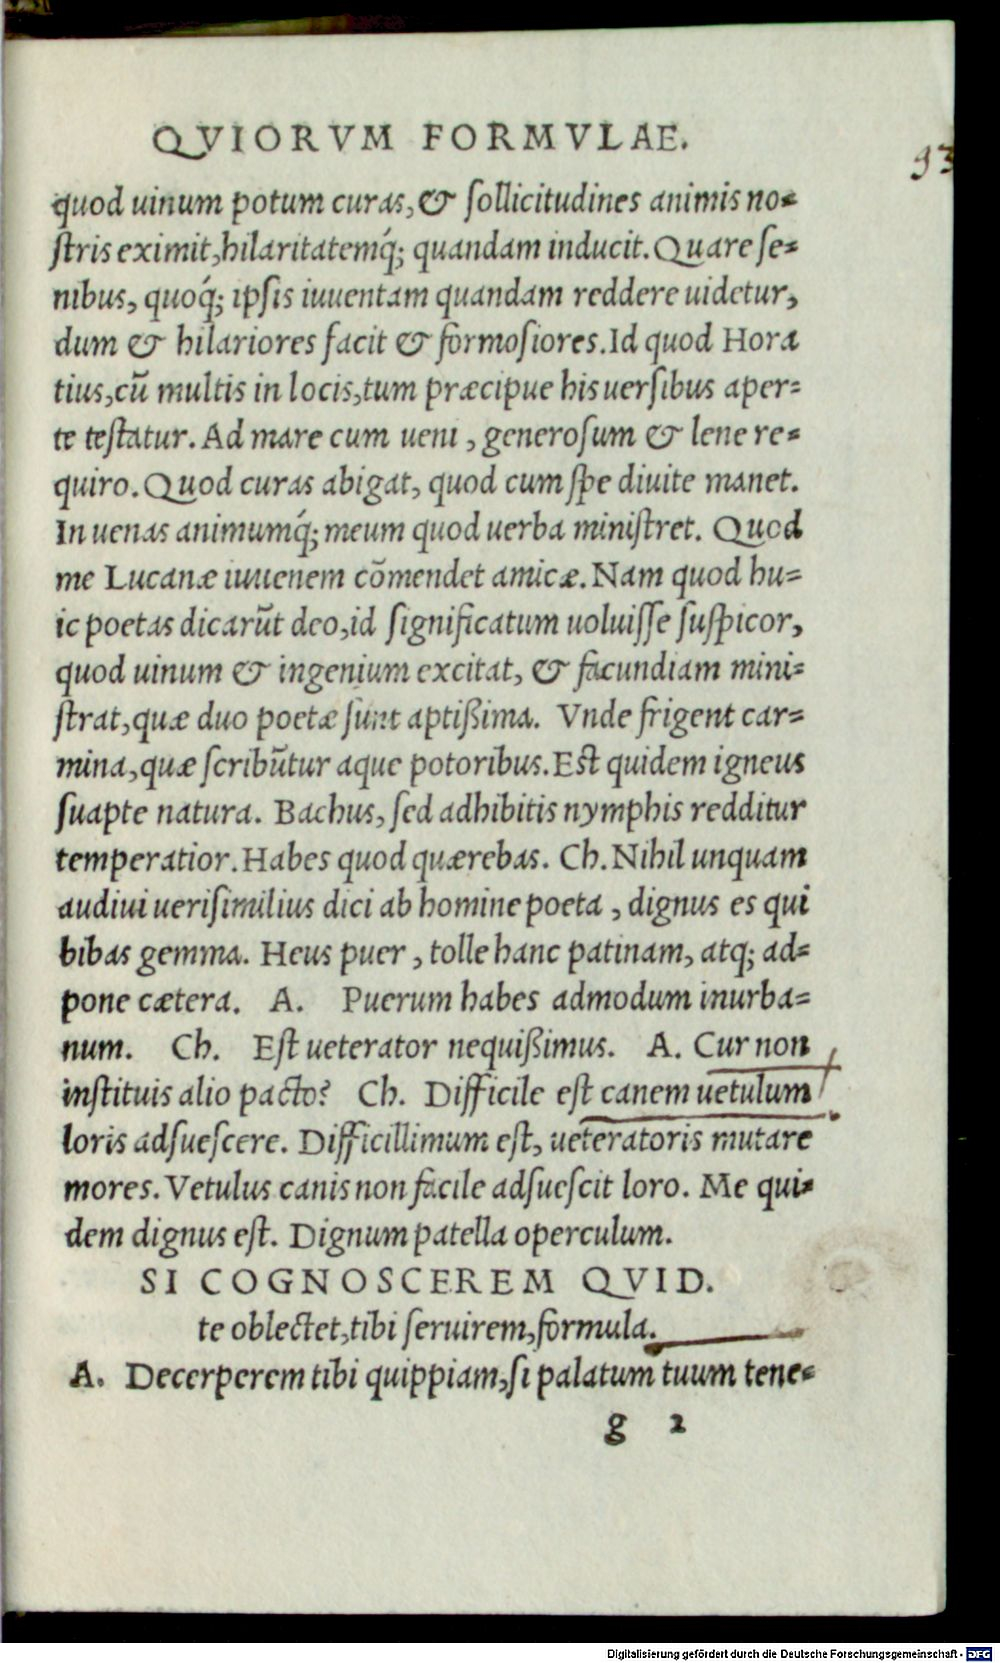 QVIORVM FORMVLAE.
93
quod uinum potum curas, & sollicitudines animis no-
stris eximit, hilaritatemq́; quandam inducit. Quare se-
nibus, quoq́; ipsis iuuentam quandam reddere uidetur,
dum & hilariores facit & formosiores. Id quod Hora
tius, cũ multis in locis, tum præcipue his uersibus aper-
te testatur. Ad mare cum ueni, generosum & lene re-
quiro. Quod curas abigat, quod cum spe diuite manet.
In uenas animumq́; meum quod uerba ministret. Quod
me Lucanæ iuuenem cõmendet amicæ. Nam quod hu-
ic poetas dicarũt deo, id significatum uoluisse suspicor,
quod uinum & ingenium excitat, & facundiam mini-
strat, quæ duo poetæ sunt aptißima. Vnde frigent car-
mina, quæ scribũtur aque potoribus. Est quidem igneus
suapte natura. Bachus, sed adhibitis nymphis redditur
temperatior. Habes quod quærebas. Ch. Nihil unquam
audiui uerisimilius dici ab homine poeta, dignus es qui
bibas gemma. Heus puer, tolle hanc patinam, atq; ad-
pone cætera. A. Puerum habes admodum inurba-
num. Ch. Est ueterator nequißimus. A. Cur non
instituis alio pacto? Ch. Difficile est canem uetulum
loris adsuescere. Difficillimum est, ueteratoris mutare
mores. Vetulus canis non facile adsuescit loro. Me qui-
dem dignus est. Dignum patella operculum.
SI COGNOSCEREM QVID.
te oblectet, tibi seruirem, formula.
A. Decerperem tibi quippiam, si palatum tuum tene-
g 2
Digitalisierung gefördert durch die Deutsche Forschungsgemeinschaft - DFG